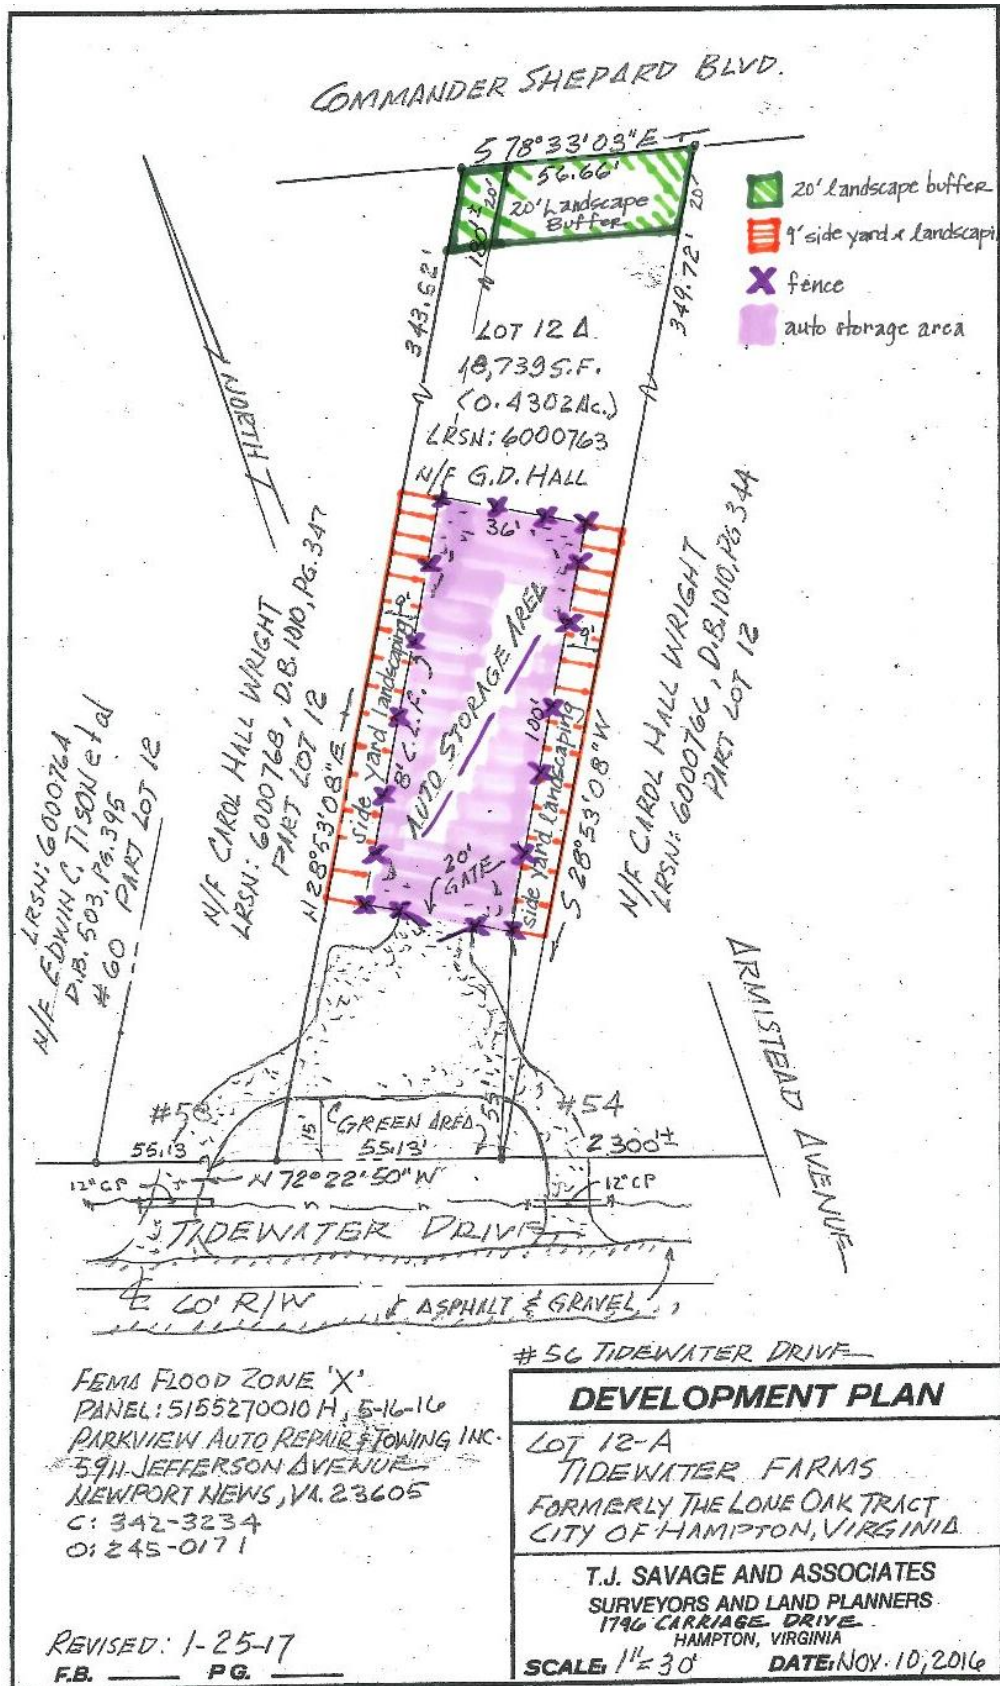 COMMANDER SHEPARD BLVD.
S 78°33'03"E
56.66'
20'
20' Landscape
Buffer
20'
180'±
343.52'
349.72'
20' landscape buffer
9' side yard & landscapi
fence
auto storage area
NORTH
LOT 12 A
18,739 S.F.
(0.4302 Ac.)
LRSN: 6000763
N/F G.D. HALL
36'
9'
9'
side yard landscaping
8' C.L.F.
AUTO STORAGE AREA
100'
side yard landscaping
20'
GATE
N 28°53'08"E
S 28°53'08"W
N/F CAROL HALL WRIGHT
LRSN: 6000768, D.B. 1010, PG. 347
PART LOT 12
N/F CAROL HALL WRIGHT
LRSN: 6000766, D.B. 1010, PG 344
PART LOT 12
LRSN: 6000764
N/F EDWIN C. TISON et al
D.B. 503, PG. 395
#60 PART LOT 12
ARMISTEAD AVENUE
#58
#54
15'
GREEN AREA
55'
55.13
55.13'
2300'±
N 72°22'50"W
12" CP
12" CP
TIDEWATER DRIVE
60' R/W
ASPHALT & GRAVEL
#56 TIDEWATER DRIVE
FEMA FLOOD ZONE 'X'
PANEL: 5155270010 H, 5-16-16
PARKVIEW AUTO REPAIR & TOWING INC.
5911 JEFFERSON AVENUE
NEWPORT NEWS, VA. 23605
C: 342-3234
O: 245-0171
REVISED: 1-25-17
F.B. PG.
DEVELOPMENT PLAN
LOT 12-A
TIDEWATER FARMS
FORMERLY THE LONE OAK TRACT
CITY OF HAMPTON, VIRGINIA
T.J. SAVAGE AND ASSOCIATES
SURVEYORS AND LAND PLANNERS
1796 CARRIAGE DRIVE
HAMPTON, VIRGINIA
SCALE: 1"=30' DATE: NOV. 10, 2016